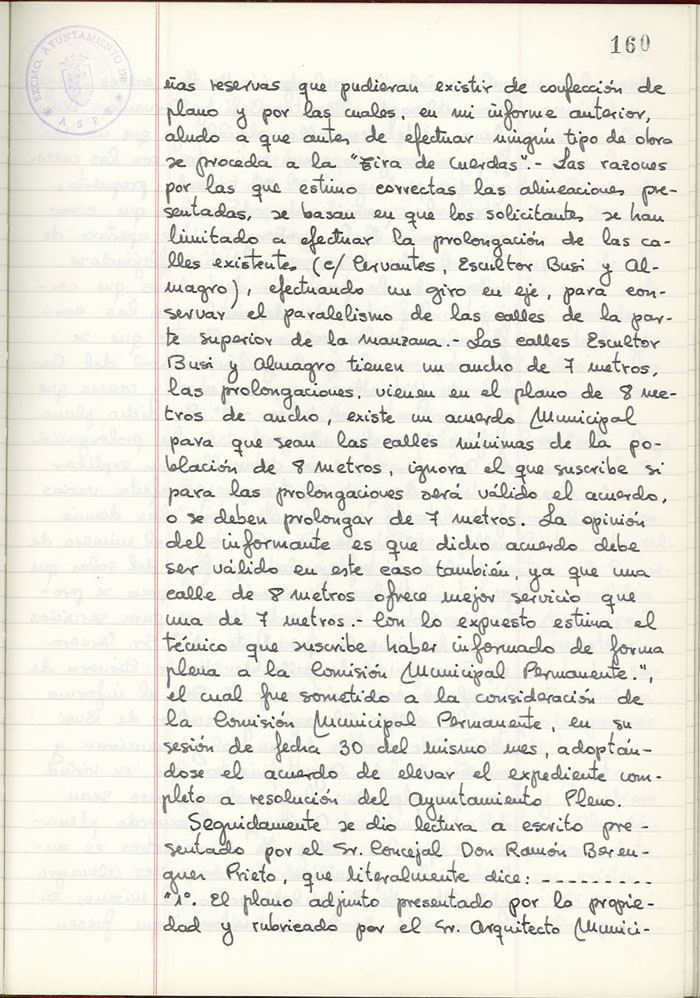 160
EXCMO. AYUNTAMIENTO DE
ASPE
ñas reservas que pudieran existir de confección de
plano y por las cuales, en mi informe anterior,
aludo a que antes de efectuar ningún tipo de obra
se proceda a la "Tira de Cuerdas".- Las razones
por las que estimo correctas las alineaciones pre-
sentadas, se basan en que los solicitantes se han
limitado a efectuar la prolongación de las ca-
lles existentes (c/ Cervantes, Escultor Busi y Al-
magro), efectuando un giro en eje, para con-
servar el paralelismo de las calles de la par-
te superior de la manzana.- Las calles Escultor
Busi y Almagro tienen un ancho de 7 metros,
las prolongaciones, vienen en el plano de 8 me-
tros de ancho, existe un acuerdo Municipal
para que sean las calles mínimas de la po-
blación de 8 metros, ignora el que suscribe si
para las prolongaciones será válido el acuerdo,
o se deben prolongar de 7 metros. La opinión
del informante es que dicho acuerdo debe
ser válido en este caso también, ya que una
calle de 8 metros ofrece mejor servicio que
una de 7 metros.- Con lo expuesto estima el
técnico que suscribe haber informado de forma
plena a la Comisión Municipal Permanente.",
el cual fue sometido a la consideración de
la Comisión Municipal Permanente, en su
sesión de fecha 30 del mismo mes, adoptán-
dose el acuerdo de elevar el expediente com-
pleto a resolución del Ayuntamiento Pleno.
Seguidamente se dio lectura a escrito pre-
sentado por el Sr. Concejal Don Ramón Beren-
guer Prieto, que literalmente dice:----------
"1º. El plano adjunto presentado por la propie-
dad y rubricado por el Sr. Arquitecto Munici-